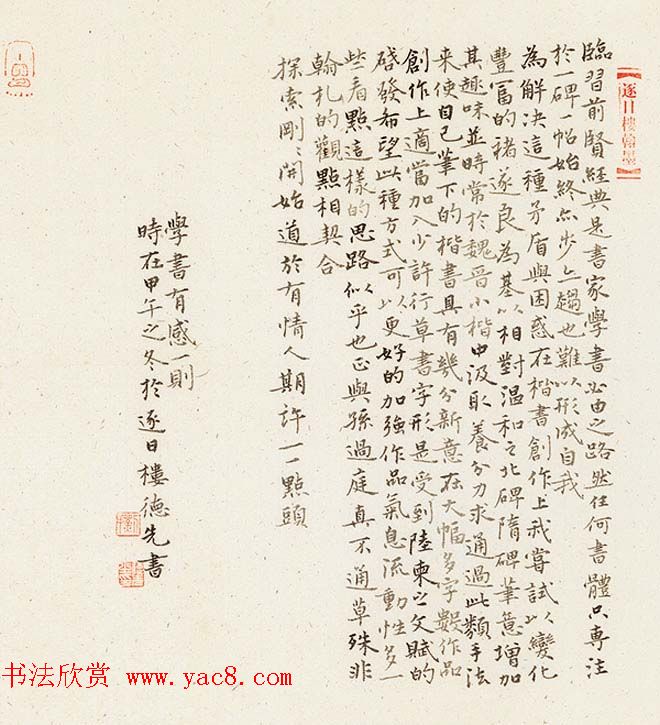 逐日樓翰墨
臨習前賢經典是書家學書必由之路然任何書體只專注
於一碑一帖始終亦步亦趨也難以形成自我
為解決這種矛盾與困惑在楷書創作上我嘗試以變化
豐富的褚遂良為基以相對溫和之北碑隋碑筆意增加
其趣味並時常於魏晉小楷中汲取養分力求通過此類手法
來使自己筆下的楷書具有幾分新意在大幅多字數作品
創作上適當加入少許行草書字形是受到陸柬之文賦的
啓發希望此種方式可以更好的加強作品氣息流動性多一
些看點這樣的思路似乎也正與孫過庭真不通草殊非
翰札的觀點相契合
探索剛〻開始道於有情人期許一一點頭
學書有感一則
時在甲午之冬於逐日樓德先書
书法欣赏 www.yac8.com